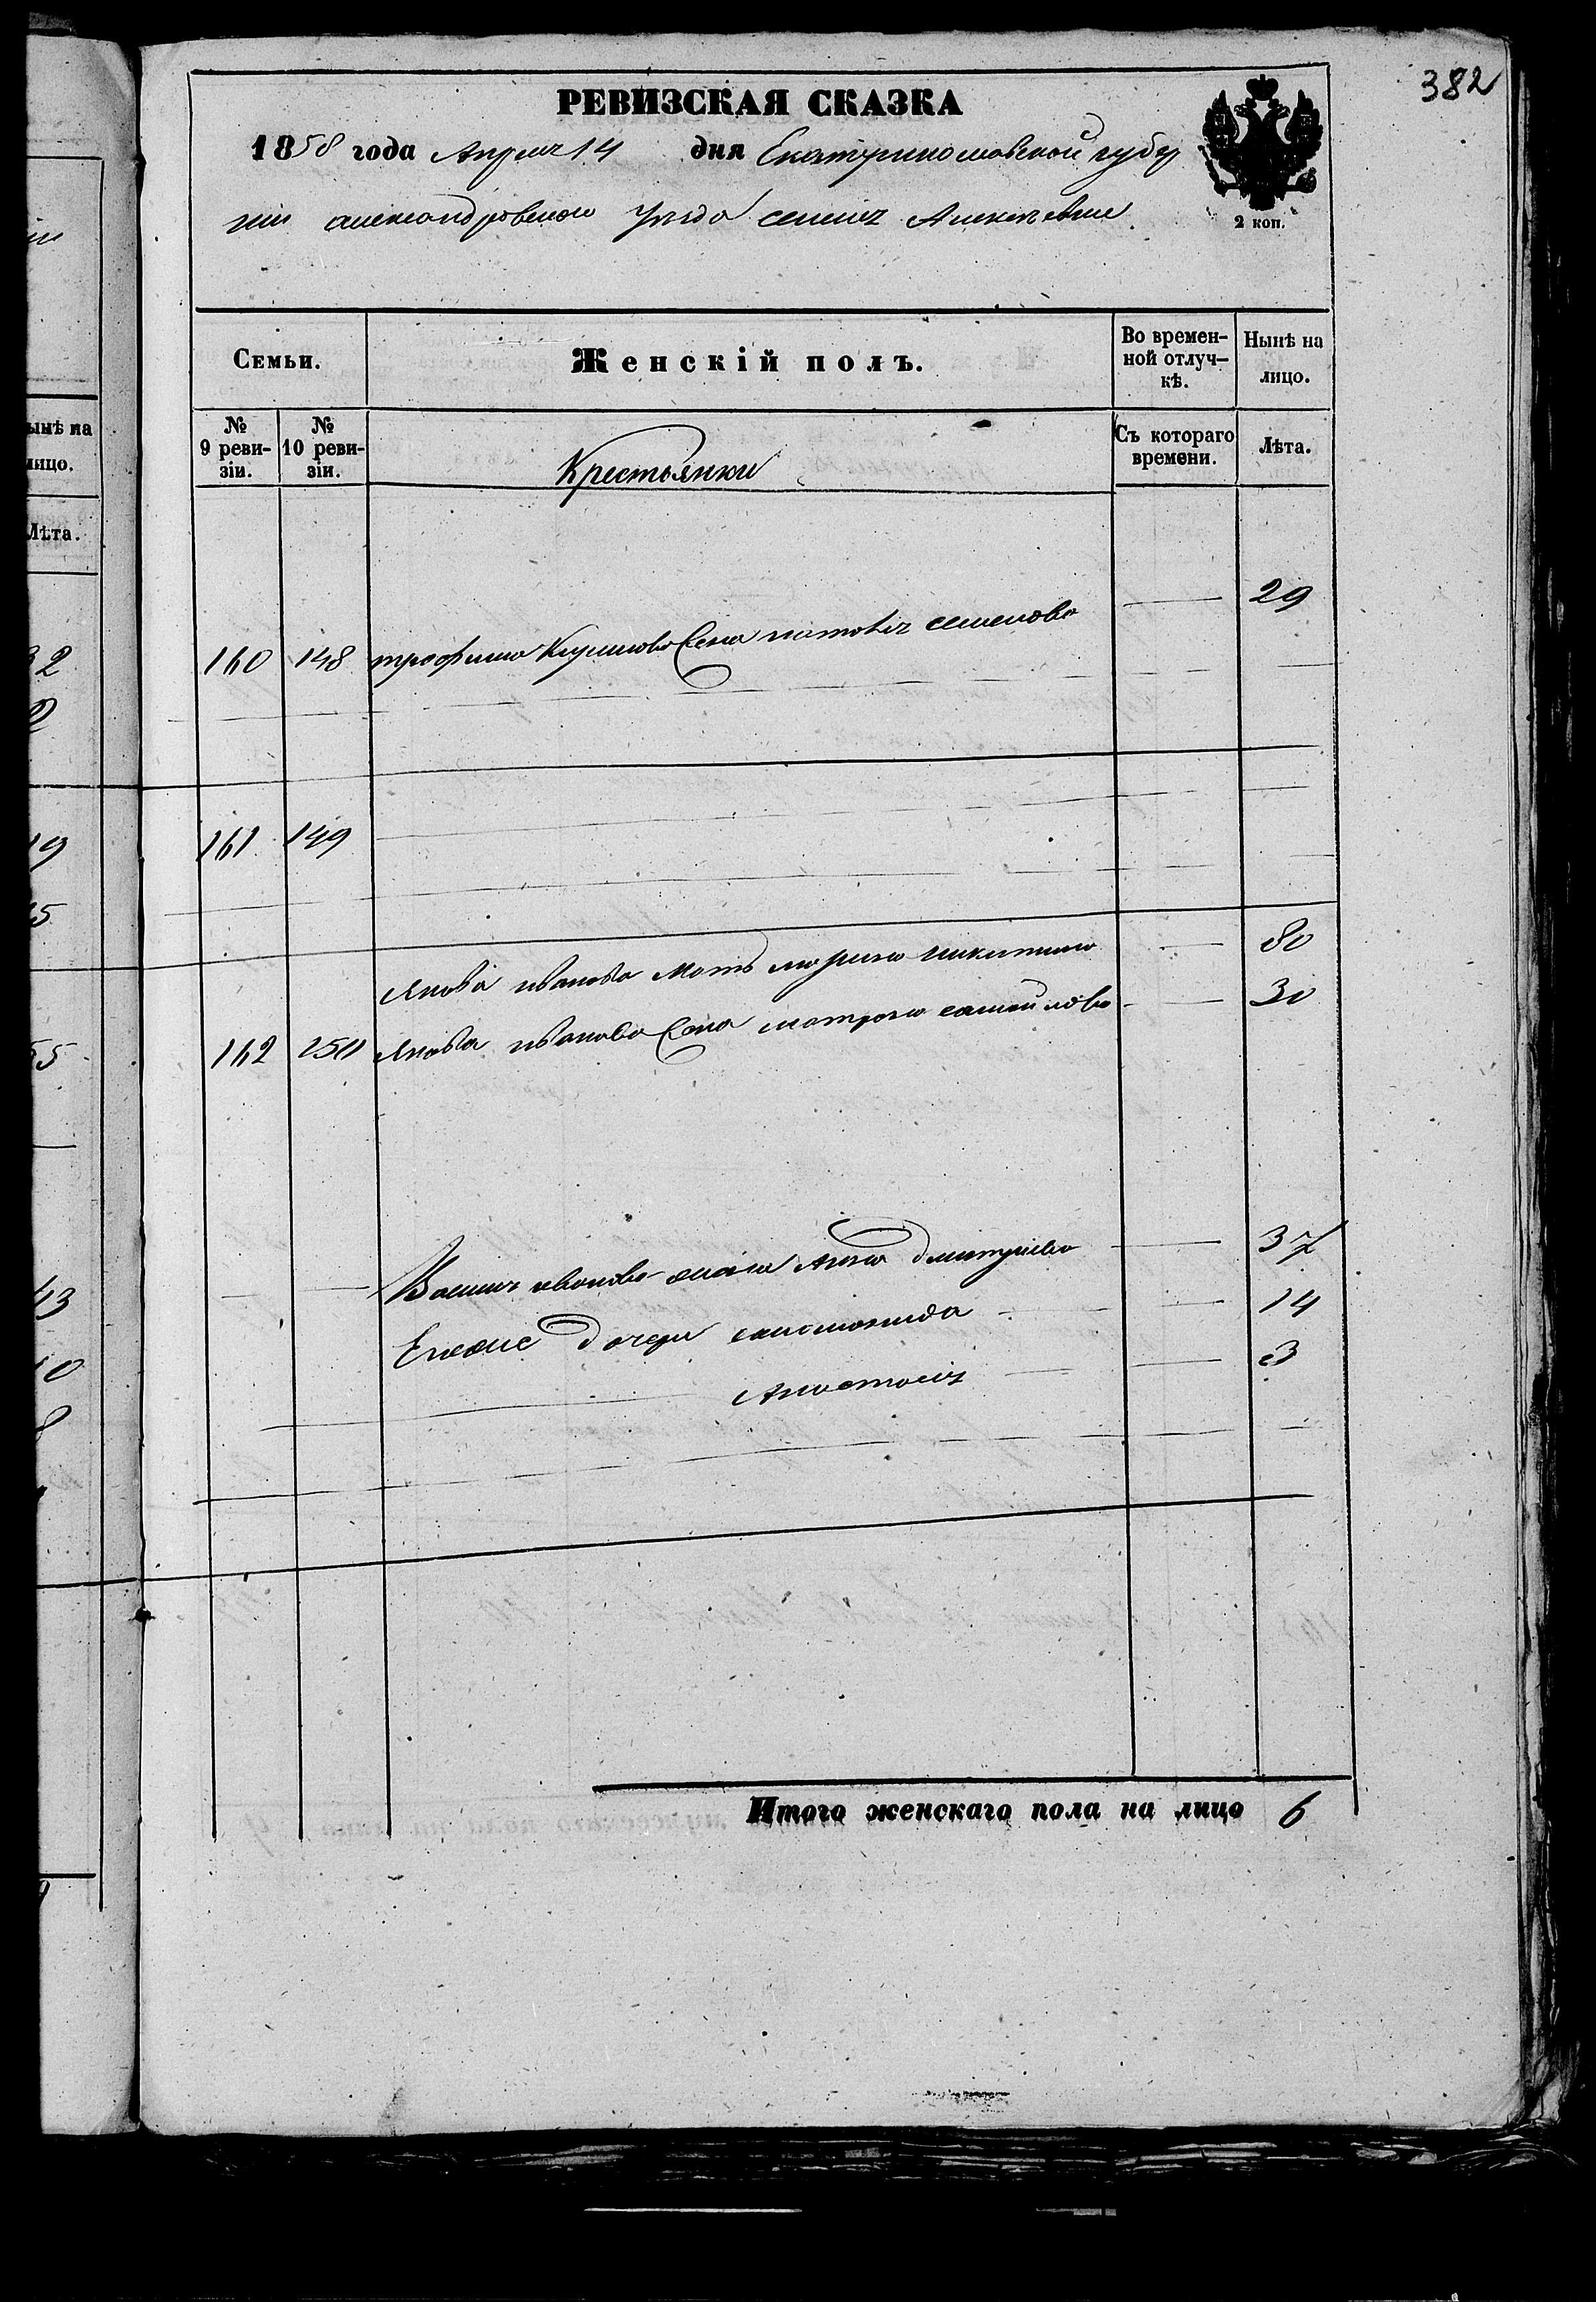 382
РЕВИЗСКАЯ СКАЗКА
1858 года Апреля 14 дня Екатеринославской губер
нии александровского уезда селения Алексеевки
2 коп.
Семьи.
Женскій полъ.
Во времен-
ной отлуч-
кѣ.
Нынѣ на
лицо.
№
9 реви-
зіи.
№
10 реви-
зіи.
Крестьянки
Съ котораго
времени.
Лѣта.
160 148 трофима жена наталия семенова 29
161 149
Якова иванова мать марина никитина 80
162 150 Якова иванова жена матрона самойлова 30
Василия иванова жена Анна дмитриева 37
Его же дочери 14
Анастасия 3
Итого женскаго пола на лицо 6
ынѣ на
лицо.
Лѣта.